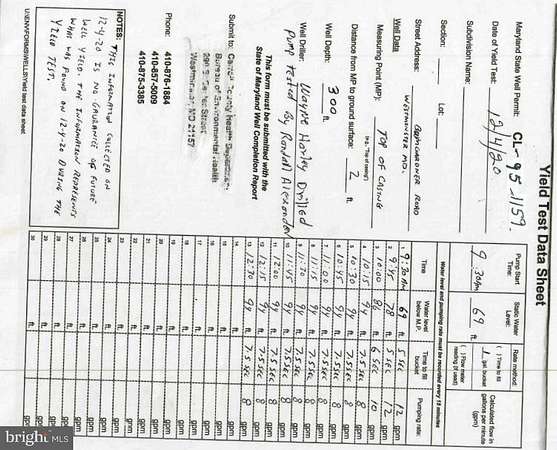 Yield Test Data Sheet
Maryland State Well Permit: CL-95-1159
Date of Yield Test: 12/4/20
Subdivision Name:
Section: Lot:
Street Address:
WESTMINSTER MD.
Well Data
Measuring Point (MP): TOP OF CASING
(e.g. "Top of casing")
Distance from MP to ground surface: 2 ft
Well Depth: 300 ft
Well Driller: WAYNE HARLEY Drilled
Pump tested By Randall Alexander
This form must be submitted with the
State of Maryland Well Completion Report
Submit to: Carroll County Health Department
Bureau of Environmental Health
290 S. Center Street
Westminster MD 21157
Phone: 410-876-1884
410-857-5009
410-875-3385
NOTES: THIS INFORMATION COLLECTED ON
12-4-20 IS NO GAURANCE OF FUTURE
WELL YIELD. THE INFORMATION REPRESENTS
WHAT WAS FOUND ON 12-4-20 DURING THE
YIELD TEST.
Pump Start Time: 9:30 AM
Static Water Level: 69 ft
Rate method:
( ) Time to fill
1 gal. bucket
( ) Flow meter
reading (if used)
Calculated flow in
gallons per minute
(gpm)
Water level and pumping rate must be recorded every 15 minutes
Time Water level below M.P. Time to fill bucket Pumping rate:
1 9:30 AM 69 ft 5 SEC 12 gpm
2 9:45 78 ft 5 SEC 12 gpm
3 10:00 86 ft 6 SEC 10 gpm
4 10:15 94 ft 7.5 SEC 8 gpm
5 10:30 94 ft 7.5 SEC 8 gpm
6 10:45 94 ft 7.5 SEC 8 gpm
7 11:00 94 ft 7.5 SEC 8 gpm
8 11:15 94 ft 7.5 SEC 8 gpm
9 11:30 94 ft 7.5 SEC 8 gpm
10 11:45 94 ft 7.5 SEC 8 gpm
11 12:00 94 ft 7.5 SEC 8 gpm
12 12:15 94 ft 7.5 SEC 8 gpm
13 12:30 94 ft 7.5 SEC 8 gpm
14 ft gpm
15 ft gpm
16 ft gpm
17 ft gpm
18 ft gpm
19 ft gpm
20 ft gpm
21 ft gpm
22 ft gpm
23 ft gpm
24 ft gpm
25 ft gpm
26 ft gpm
27 ft gpm
28 ft gpm
29 ft gpm
30 ft gpm
bright MLS